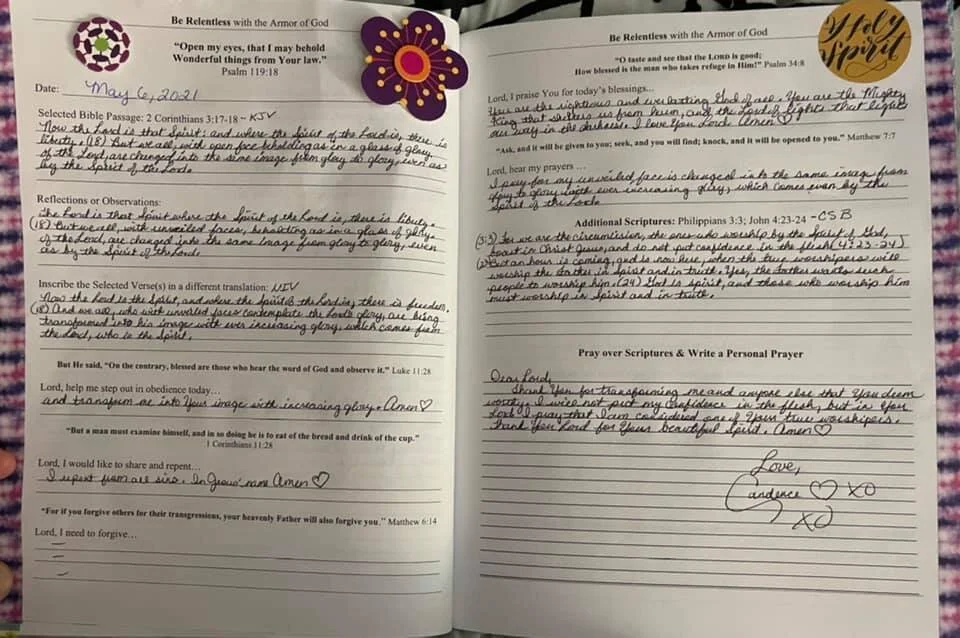 Be Relentless with the Armor of God
"Open my eyes, that I may behold
Wonderful things from Your law."
Psalm 119:18
Date: May 6, 2021
Selected Bible Passage: 2 Corinthians 3:17-18 ~ KJV
Now the Lord is that Spirit: and where the Spirit of the Lord is, there is
liberty. (18) But we all, with open face beholding as in a glass of glory
of the Lord, are changed into the same image from glory to glory, even as
by the Spirit of the Lord.
Reflections or Observations:
The Lord is that Spirit where the Spirit of the Lord is, there is liberty.
(18) But we all, with unveiled faces, beholding as in a glass of glory
of the Lord, are changed into the same image from glory to glory, even
as by the Spirit of the Lord.
Inscribe the Selected Verse(s) in a different translation: NIV
Now the Lord is the Spirit, and where the Spirit of the Lord is, there is freedom.
(18) And we all, who with unveiled faces contemplate the Lord's glory, are being
transformed into his image with ever increasing glory, which comes from
the Lord, who is the Spirit.
But He said, "On the contrary, blessed are those who hear the word of God and observe it." Luke 11:28
Lord, help me step out in obedience today…
and transform me into Your image with increasing glory. Amen ♡
"But a man must examine himself, and in so doing he is to eat of the bread and drink of the cup."
1 Corinthians 11:28
Lord, I would like to share and repent…
I repent from all sins. In Jesus' name Amen ♡
"For if you forgive others for their transgressions, your heavenly Father will also forgive you." Matthew 6:14
Lord, I need to forgive…
Be Relentless with the Armor of God
Holy
Spirit
"O taste and see that the LORD is good;
How blessed is the man who takes refuge in Him!" Psalm 34:8
Lord, I praise You for today's blessings…
You are the righteous and everlasting God of all. You are the Mighty
King that shelters us from harm, and the Lord of lights that lights
our way in the darkness. I love You Lord. Amen ♡
"Ask, and it will be given to you; seek, and you will find; knock, and it will be opened to you." Matthew 7:7
Lord, hear my prayers …
I pray for my unveiled face is changed into the same image from
glory to glory with ever increasing glory, which comes even by the
Spirit of the Lord.
Additional Scriptures: Philippians 3:3; John 4:23-24 ~ CSB
(3:3) For we are the circumcision, the ones who worship by the Spirit of God,
boast in Christ Jesus, and do not put confidence in the flesh (4:23-24)
(23) But an hour is coming, and is now here, when the true worshipers will
worship the Father in Spirit and in truth. Yes, the Father wants such
people to worship him. (24) God is spirit, and those who worship him
must worship in Spirit and in truth.
Pray over Scriptures & Write a Personal Prayer
Dear Lord,
Thank You for transforming me and anyone else that You deem
worthy. I will not put my confidence in the flesh, but in You
Lord. I pray that I am considered one of Your true worshipers.
Thank You Lord for Your beautiful Spirit. Amen ♡
Love,
Candence ♡ XO
XO